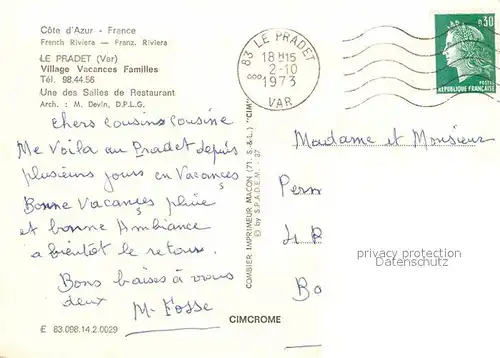 Côte d'Azur - France
French Riviera — Franz. Riviera
LE PRADET (Var)
Village Vacances Familles
Tél. 98.44.56
Une des Salles de Restaurant
Arch. : M. Devin, D.P.L.G.
Chers Cousins Cousine
Me Voila au Pradet depuis
plusieurs jours en Vacances
Bonne Vacances pluie
et bonne Ambiance
a bientôt le retour.
Bons baises à vous
deux
M. Fosse
E 83.098.14.2.0029
CIMCROME
COMBIER IMPRIMEUR MACON (71. S.-&-L.) "CIM"
© by S.P.A.D.E.M. - 37
83 LE PRADET
18H15
2-10
1973
VAR
0,30
POSTES
REPUBLIQUE FRANÇAISE
Madame et Monsieur
Perm
4 R
Bo
privacy protection
Datenschutz